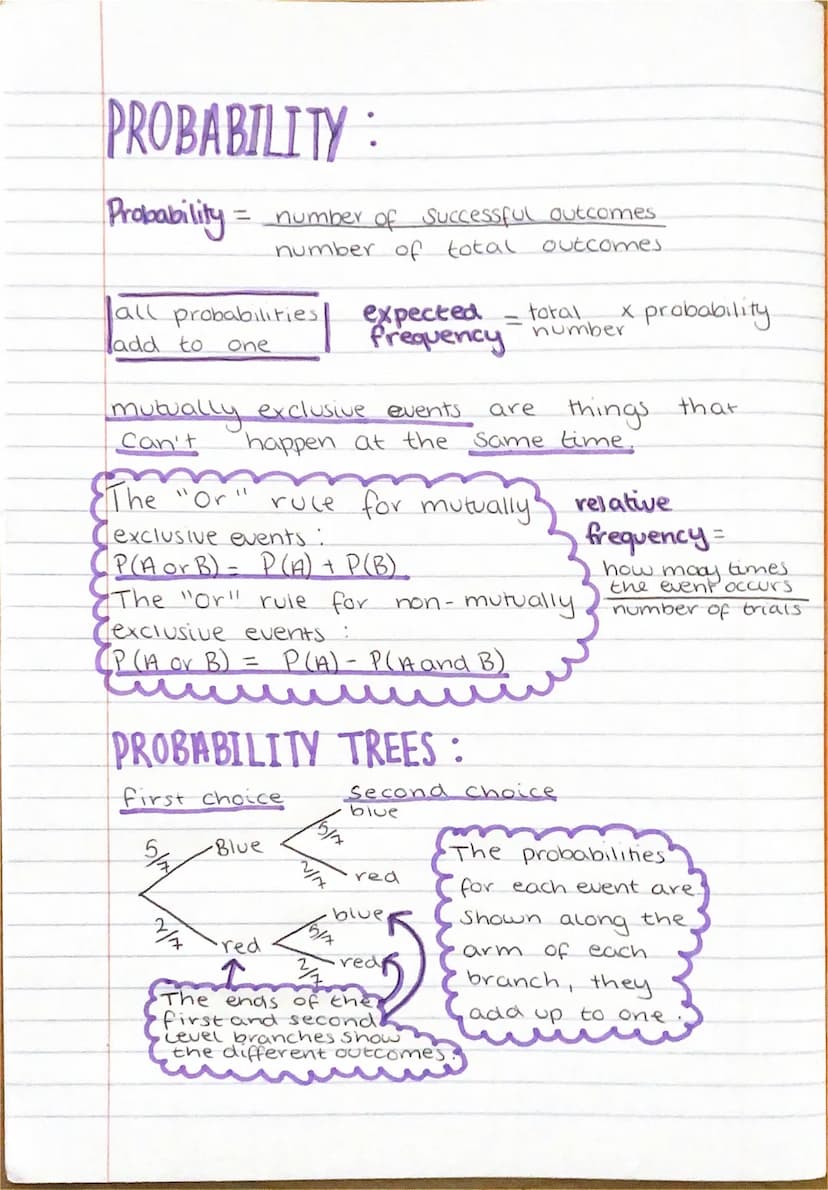 PROBABILITY :
Probability = number of successful outcomes
number of total outcomes
all probabilities
add to one
expected frequency = total number x probability
mutually exclusive events are things that
can't happen at the same time.
The "or" rule for mutually
exclusive events :
P(A or B) = P(A) + P(B)
The "or" rule for non-mutually
exclusive events :
P(A or B) = P(A) - P(A and B)
relative
frequency =
how many times
the event occurs
number of trials
PROBABILITY TREES :
first choice
second choice
5/7
Blue
5/7
blue
2/7
red
2/7
red
5/7
blue
2/7
red
The ends of the
first and second
level branches show
the different outcomes.
The probabilities
for each event are
shown along the
arm of each
branch, they
add up to one.